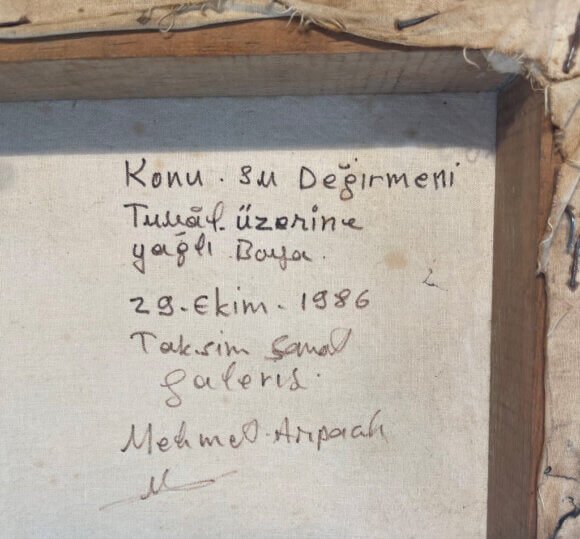 Konu. Su Değirmeni
Tuvâl üzerine
yağlı Boya.
29. Ekim. 1986
Taksim Sanat
galerisi.
Mehmet